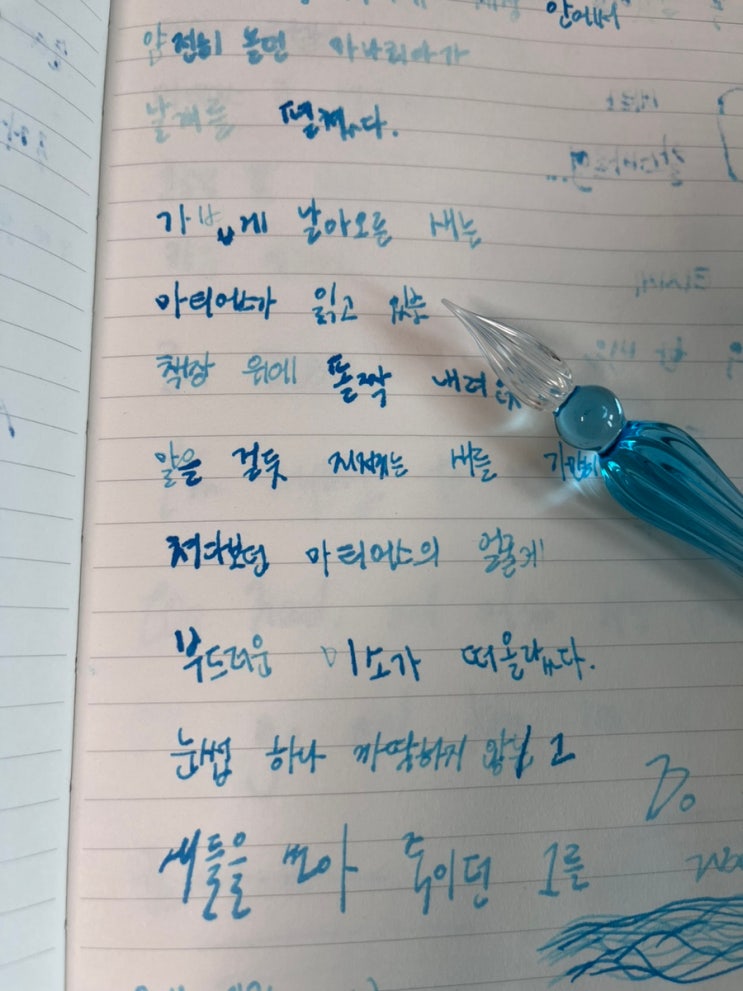 안에서
얌전히 놀던 카나리아가
날개를 펼쳤다.
가볍게 날아오른 새는
마티어스가 읽고 있는
책장 위에 폴짝 내려
말을 걸듯 지저귀는 새를 가만히
쳐다보던 마티어스의 얼굴에
부드러운 미소가 떠올랐다.
눈썹 하나 까딱하지 않고
새들을 쏘아 죽이던 그를